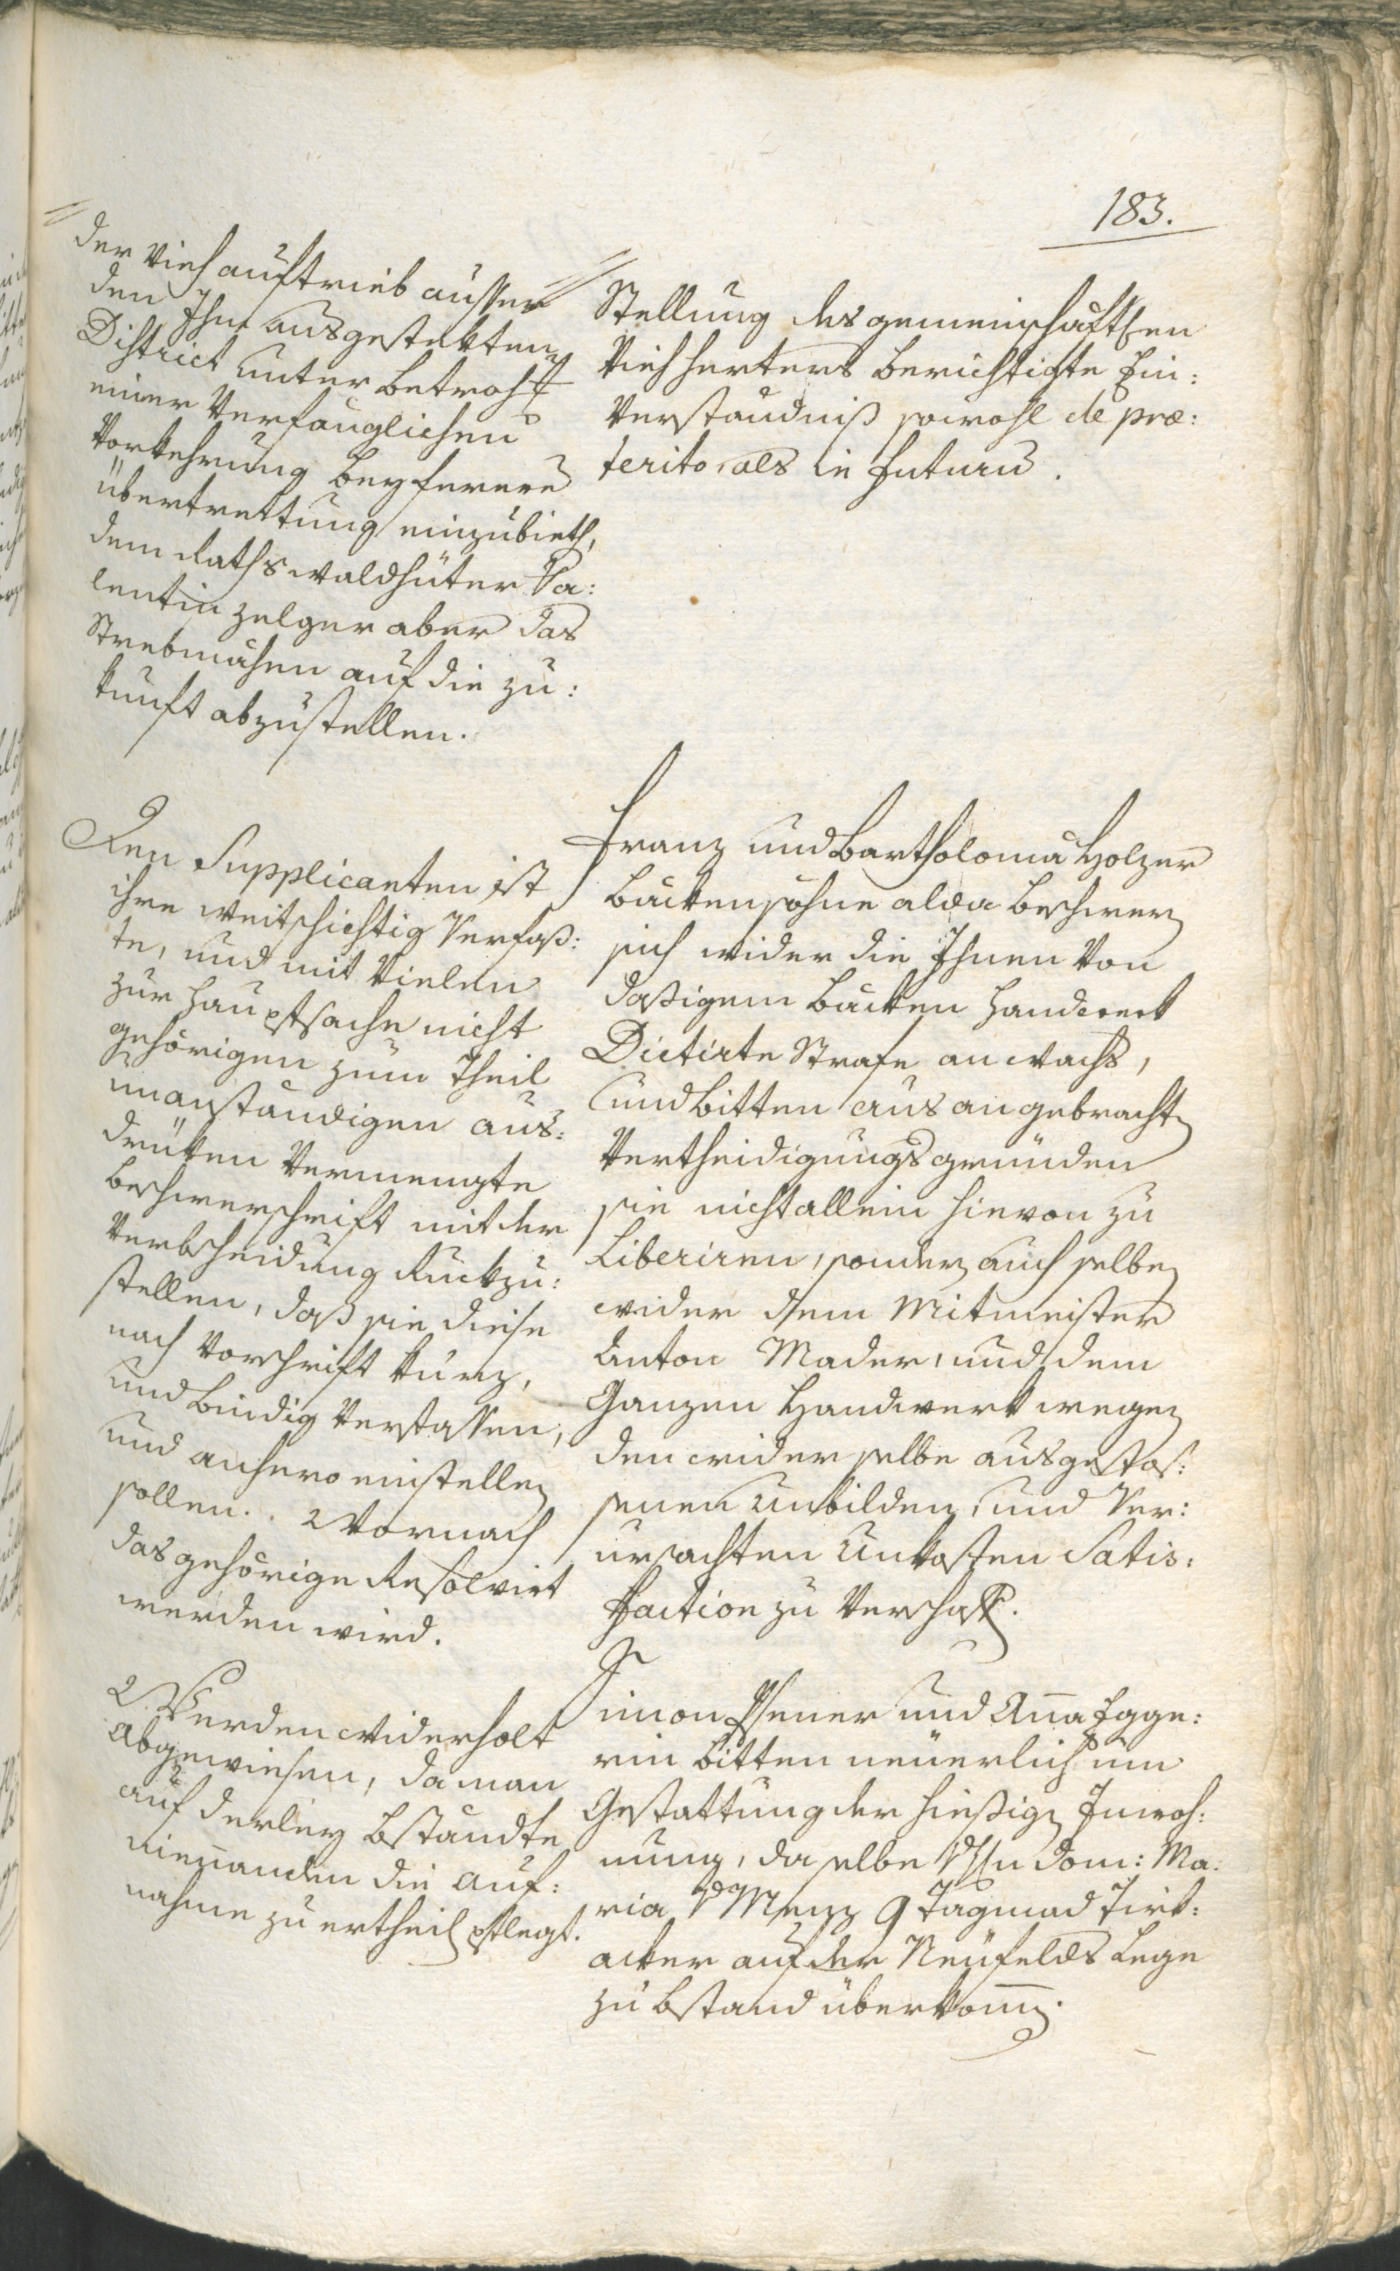 183.
der Viehauftrieb ausser
den Ihm ausgestekten
District unter betroh
einer Verfänglichen
Vorkehrung bey fernere
übertrettung einzubieth,
dem Rathswaldhüter Va:
lentin Zelger aber das
Strebmähen auf die Zu:
kunft abzustellen.
Stellung des gemeinschaftlen
Viehherters berichtigte Ein:
Verständniß sowohl de præ:
terito, als in Futuru.
Den Supplicanten ist
ihre weitschichtig Verfaß:
te, und mit Vielen
zur Hauptsache nicht
gehörigen zum Theil
unanständigen aus:
drüken Vermengte
beschwerschrift mit der
Verbscheidung Rückzu:
stellen, daß sie diese
nach Vorschrift kurz,
und bündig Verfassen,
und anhero einstellen
sollen. Wornach
das gehörige Resolvirt
werden wird.
Franz und Bartholomä Holzer
Bäckensöhne alda beschweren
sich wider die Ihnen Von
daßigem Bäcken Handwerk
Dictirte Strafe an Wachs,
und bitten aus angebrachten
Vertheidigungsgründen
sie nicht allein hievon zu
Liberiren, sondern auch selben
wider dem Mitmeister
Anton Mader, und dem
Ganzen Handwerk wegen
den wider selbe ausgestos:
senen Unbilden, und Ver:
ursachten Unkosten Satis:
faction zu Verschaff.
Werden widerholt
Abgewiesen, da man
auf derley Bstandte
niemanden die Auf:
nahme zu ertheilen pflegt.
Simon und Anna Egge:
rin bitten neüerlich um
Gestattung der hießigen Inwoh:
nung, da selbe Dom: Ma:
ria Menz 9 Tagmad Türk:
aker auf der Neüfelds Lege
zu Bstand überkomen.